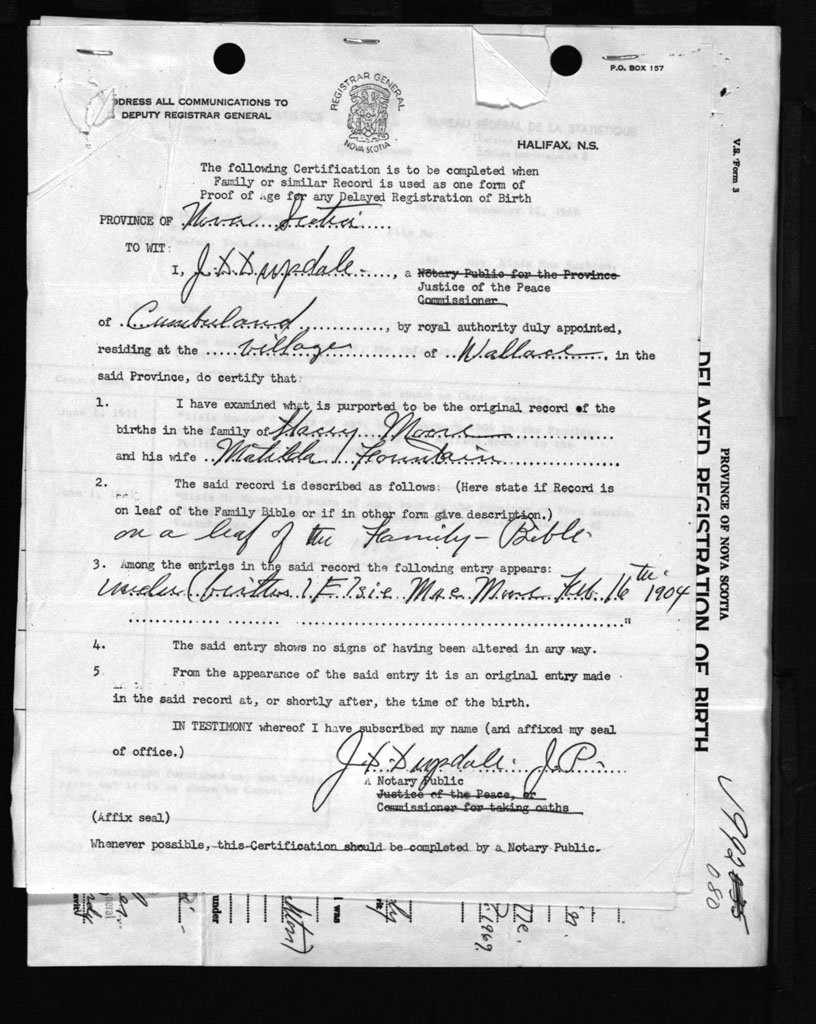 P.O. BOX 157
DDRESS ALL COMMUNICATIONS TO
DEPUTY REGISTRAR GENERAL
REGISTRAR GENERAL
NOVA SCOTIA
HALIFAX, N.S.
V.S. Form 3
The following Certification is to be completed when
Family or similar Record is used as one form of
Proof of Age for any Delayed Registration of Birth
PROVINCE OF Nova Scotia
TO WIT:
I, , a Notary Public for the Province
Justice of the Peace
Commissioner
of Cumberland, by royal authority duly appointed,
residing at the village of Wallace, in the
said Province, do certify that:
1. I have examined what is purported to be the original record of the
births in the family of Stacey Moore
and his wife Matilda Fountain
2. The said record is described as follows: (Here state if Record is
on leaf of the Family Bible or if in other form give description.)
on a leaf of the Family Bible
3. Among the entries in the said record the following entry appears:
under (births) Elsie Mae Moore Feb. 16th 1904
"
4. The said entry shows no signs of having been altered in any way.
5 From the appearance of the said entry it is an original entry made
in the said record at, or shortly after, the time of the birth.
IN TESTIMONY whereof I have subscribed my name (and affixed my seal
of office.)
J.P.
A Notary Public
Justice of the Peace, or
Commissioner for taking oaths
(Affix seal)
Whenever possible, this Certification should be completed by a Notary Public.
PROVINCE OF NOVA SCOTIA
DELAYED REGISTRATION OF BIRTH
1902
080
under
I was
1969